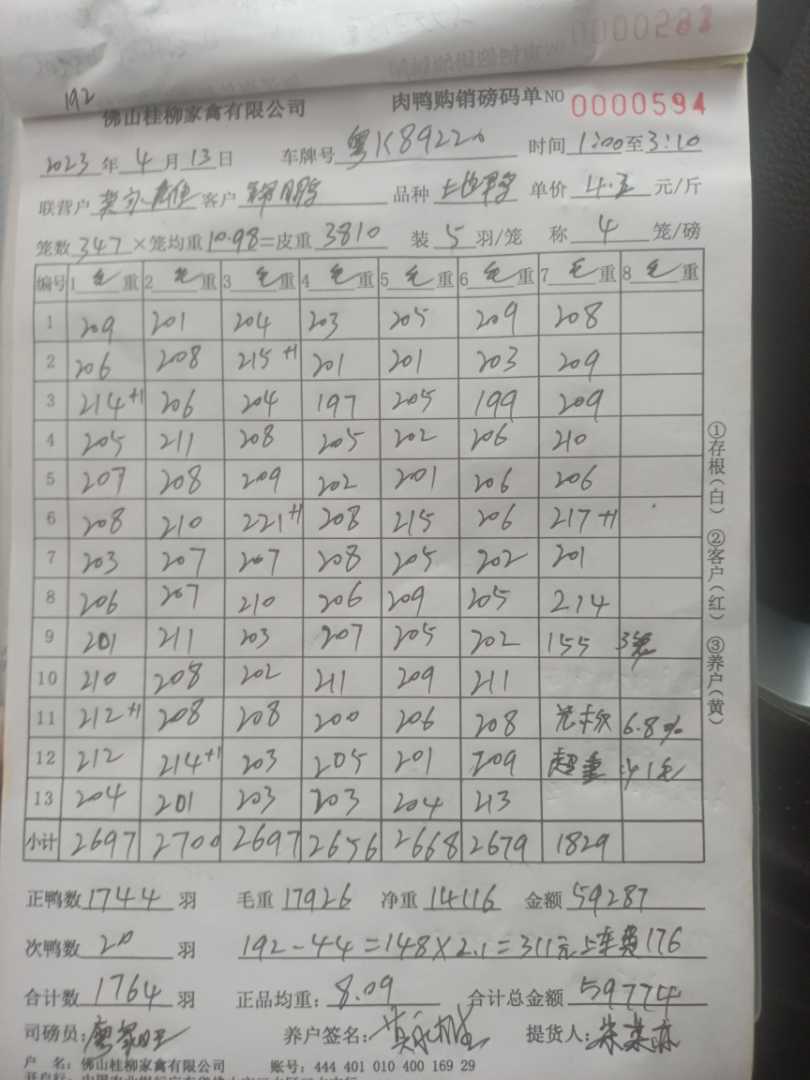 0000593
192
佛山桂柳家禽有限公司 肉鸭购销磅码单 NO 0000594
2023 年 4 月 13 日 车牌号 粤K89220 时间 1:00 至 3:10
联营户 客户 品种 单价 4.2 元/斤
笼数 347 ×笼均重 10.98 =皮重 3810 装 5 羽/笼 称 4 笼/磅
编号 1 毛 重 2 毛 重 3 毛 重 4 毛 重 5 毛 重 6 毛 重 7 毛 重 8 毛 重
1 209 201 204 203 205 209 208
2 206 208 215+1 201 201 203 209
3 214+1 206 204 197 205 199 209
4 205 211 208 205 202 206 210
5 207 208 209 202 201 206 206
6 208 210 221+1 208 215 206 217+1
7 203 207 207 208 205 202 201
8 206 207 210 206 209 205 214
9 201 211 203 207 205 202 155 3笼
10 210 208 202 211 209 211
11 212+1 208 208 200 206 208 6.8%
12 212 214+1 203 205 201 209 超重
13 204 201 203 203 204 213
小计 2697 2700 2697 2656 2668 2679 1829
①存根(白) ②客户(红) ③养户(黄)
正鸭数 1744 羽 毛重 17926 净重 14116 金额 59287
次鸭数 20 羽 192-44=148×2.1=311元 上车费176
合计数 1764 羽 正品均重: 8.09 合计总金额 59774
司磅员: 养户签名: 提货人:
户 名: 佛山桂柳家禽有限公司 账号: 444 401 010 400 169 29